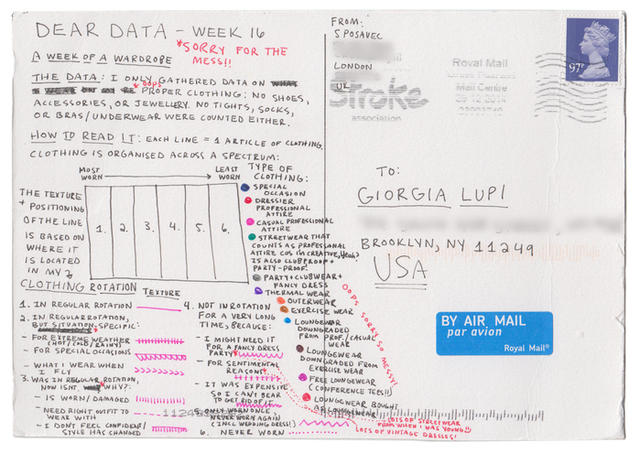 DEAR DATA - WEEK 16
*SORRY FOR THE
MESS!!
A WEEK OF A WARDROBE
THE DATA: I ONLY GATHERED DATA ON
OOPS
PROPER CLOTHING: NO SHOES,
ACCESSORIES, OR JEWELLERY. NO TIGHTS, SOCKS,
OR BRAS/UNDERWEAR WERE COUNTED EITHER.
HOW TO READ IT: EACH LINE = 1 ARTICLE OF CLOTHING.
CLOTHING IS ORGANISED ACROSS A SPECTRUM:
MOST WORN
LEAST WORN
THE TEXTURE
+ POSITIONING
OF THE LINE
IS BASED ON
WHERE IT
IS LOCATED
IN MY
CLOTHING ROTATION
1. 2. 3. 4. 5. 6.
TYPE OF
CLOTHING:
SPECIAL
OCCASION
DRESSIER
PROFESSIONAL
ATTIRE
CASUAL PROFESSIONAL
ATTIRE
STREETWEAR THAT
COUNTS AS PROFESSIONAL
ATTIRE COS IM CREATIVE,
IS ALSO CLUBPROOF +
PARTY-PROOF
PARTY + CLUBWEAR +
FANCY DRESS
THERMAL WEAR
OUTERWEAR
EXERCISE WEAR
LOUNGEWEAR
DOWNGRADED
FROM PROF./CASUAL
WEAR
LOUNGEWEAR
DOWNGRADED FROM
EXERCISE WEAR
FREE LOUNGEWEAR
(CONFERENCE TEES!!)
LOUNGEWEAR BOUGHT
AS LOUNGEWEAR
TEXTURE
1. IN REGULAR ROTATION
2. IN REGULAR ROTATION,
BUT SITUATION-SPECIFIC:
- FOR EXTREME WEATHER
(HOT/COLD/RAINY)
- FOR SPECIAL OCCASIONS
- WHAT I WEAR WHEN
I FLY
3. WAS IN REGULAR ROTATION,
NOW ISNT. WHY?:
- IS WORN/DAMAGED
- NEED RIGHT OUTFIT TO
WEAR WITH
- I DON'T FEEL CONFIDENT/
STYLE HAS CHANGED
4. NOT IN ROTATION
FOR A VERY LONG
TIME, BECAUSE:
- I MIGHT NEED IT
FOR A FANCY DRESS
PARTY
- FOR SENTIMENTAL
REASONS
- IT WAS EXPENSIVE
SO I CAN'T BEAR
TO GET RID OF IT
5. ONLY WORN ONCE,
NEVER WORN AGAIN
(INCL WEDDING DRESS!)
6. NEVER WORN
OOPS SORRY SO MESSY!
LOTS OF STREETWEAR
FROM WHEN I WAS YOUNG
LOTS OF VINTAGE DRESSES!
FROM:
S POSAVEC
LONDON
UK
stroke
association
Royal Mail
Mail Centre
97P
TO:
GIORGIA LUPI
BROOKLYN, NY 11249
USA
BY AIR MAIL
par avion
Royal Mail®